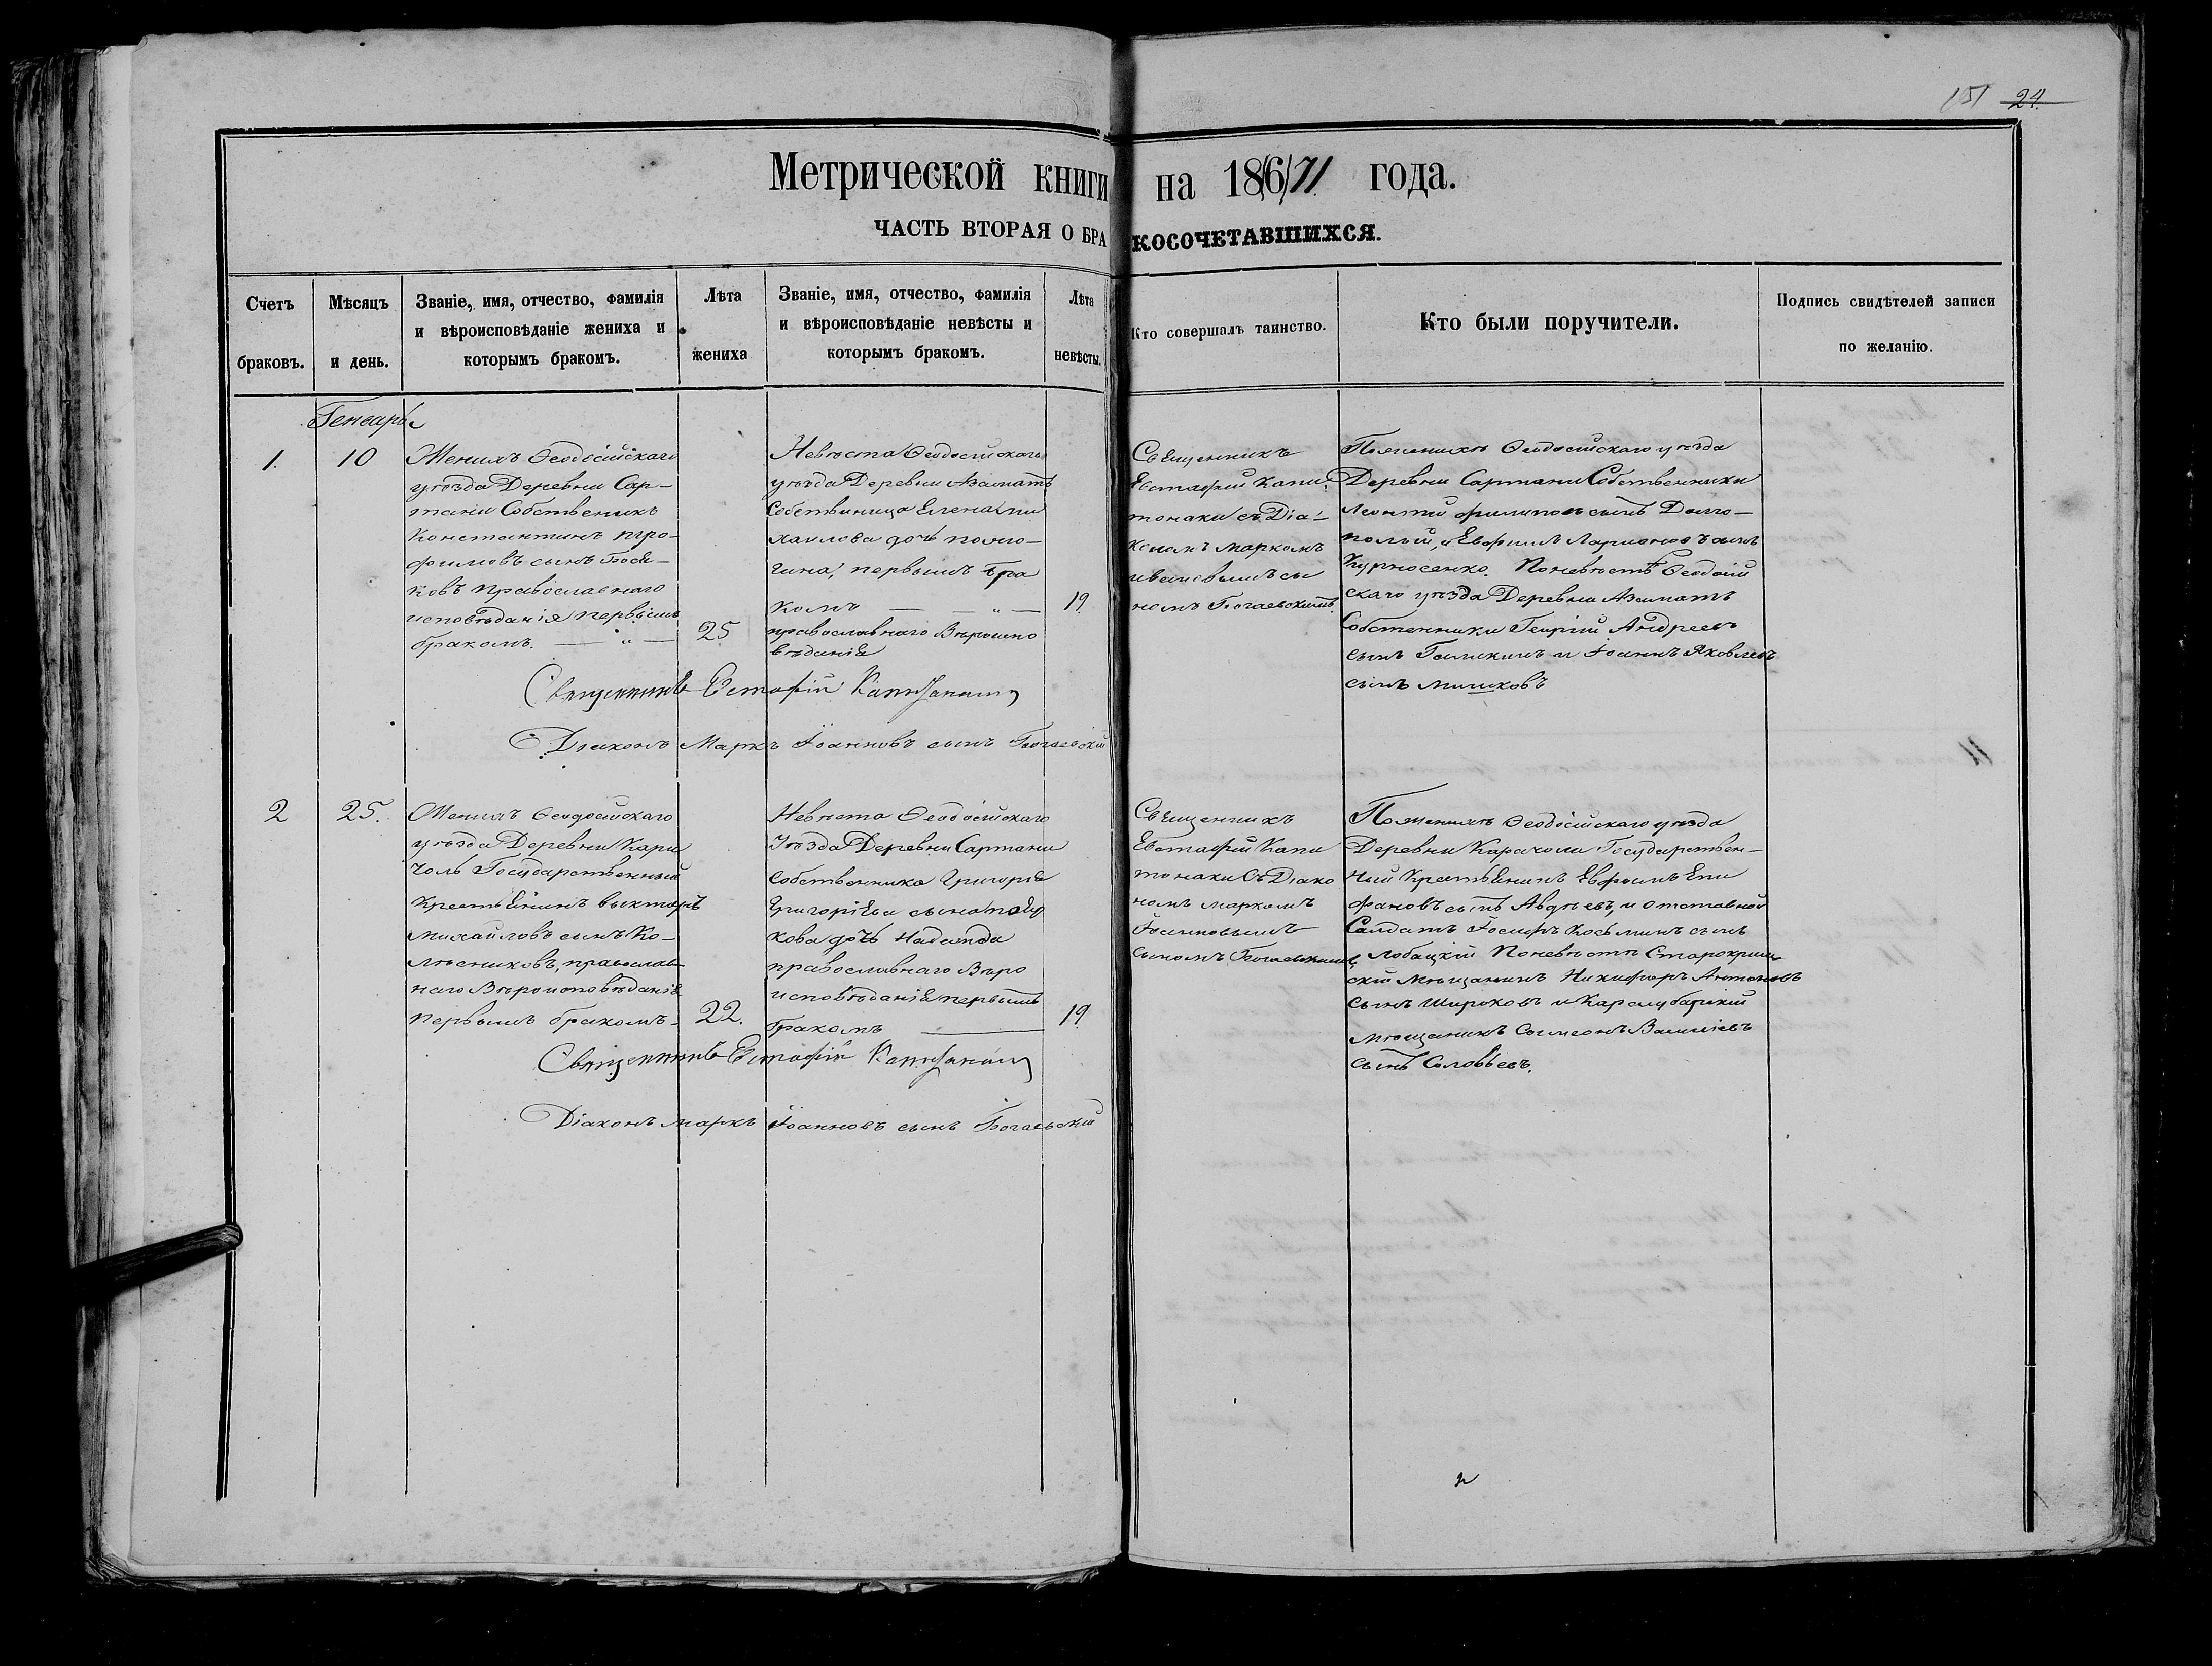 151 24.
Метрической книги на 186/71 года.
ЧАСТЬ ВТОРАЯ О БРАКОСОЧЕТАВШИХСЯ.
Счетъ браковъ.
Мѣсяцъ и день.
Званіе, имя, отчество, фамилія
и вѣроисповѣданіе жениха и
которымъ бракомъ.
Лѣта жениха
Званіе, имя, отчество, фамилія
и вѣроисповѣданіе невѣсты и
которымъ бракомъ.
Лѣта невѣсты.
Кто совершалъ таинство.
Кто были поручители.
Подпись свидѣтелей записи
по желанію.
Генварь
1.
10
Женихъ Ѳеодосійскаго
уѣзда Деревни Сар-
тани Собственикъ
Константинъ
сынъ
ковъ православнаго
исповѣданія первымъ
бракомъ. — " —
25
Невѣста Ѳеодосійскаго
уѣзда Деревни
Собственица Елена Ми
хаилова дочь
гина, первымъ бра
комъ — " —
православнаго Вѣроиспо
вѣданія
19
Священникъ
Евстафій Капи
тонаки съ Діа-
кономъ Маркомъ
Ивановымъ сы
номъ Богаевскимъ
Поженихѣ Ѳеодосійскаго уѣзда
Деревни Сартани Собственники
Леонтій Филиповъ сынъ Долго-
полый, и Евфимъ Ларионовъ сынъ
Курносенко. Поневѣстѣ Ѳеодосій
скаго уѣзда Деревни
Собственники Георгій Андреевъ
сынъ и Іоаннъ Яковлевъ
сынъ
Священникъ Естафій Капитонаки
Діаконъ Маркъ Іоанновъ сынъ Богаевскій
2
25.
Женихъ Ѳеодосійскаго
уѣзда Деревни Кара
чоль Государственный
Крестьянинъ Викторъ
Михайловъ сынъ Ко-
лѣсниковъ, православ
наго Вѣроисповѣданія
первымъ бракомъ-
22.
Невѣста Ѳеодосійскаго
Уѣзда Деревни Сартани
Собственника Григорія
Григорьева сына
кова дочь Надежда
православнаго Вѣро
исповѣданія первымъ
бракомъ —
19
Священникъ
Евстафій Капи
тонаки Съ Діако
номъ Маркомъ
Іоанновымъ
Сыномъ Богаевскимъ
Поженихѣ Ѳеодосійскаго уѣзда
Деревни Карачоли Государствен-
ный Крестьянинъ Евфимъ Епи
фановъ сынъ Авдѣевъ, и отставной
Салдатъ Іосифъ Косьминъ сынъ
Лобацкій Поневѣстѣ Старокрым
скій Мѣщанинъ Никифоръ Антоновъ
Сынъ Широковъ и Карасубазскій
мѣщанинъ Сымеонъ Василіевъ
Сынъ Соловьевъ.
Священникъ Естафій Капитонаки
Діаконъ Маркъ Іоанновъ сынъ Богаевскій